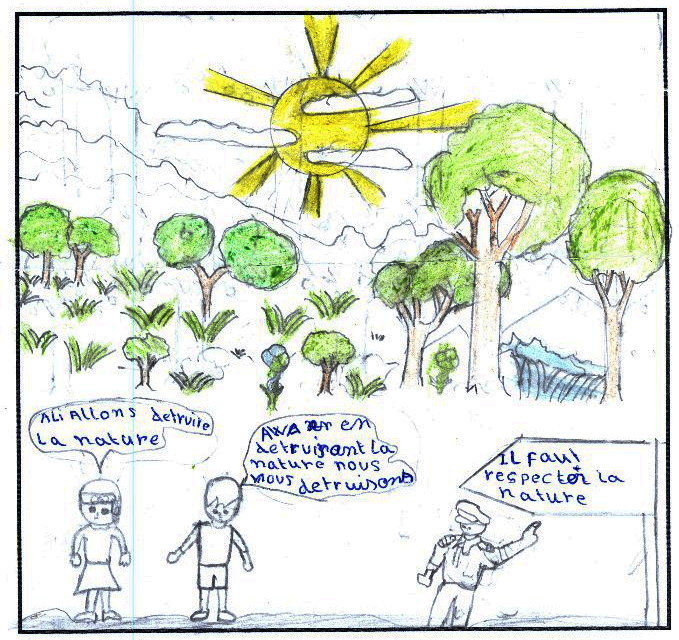 ALi Allons detruire
La nature
AWA en
detruisant La
nature nous
nous detruisons
IL faut
respecter La
nature